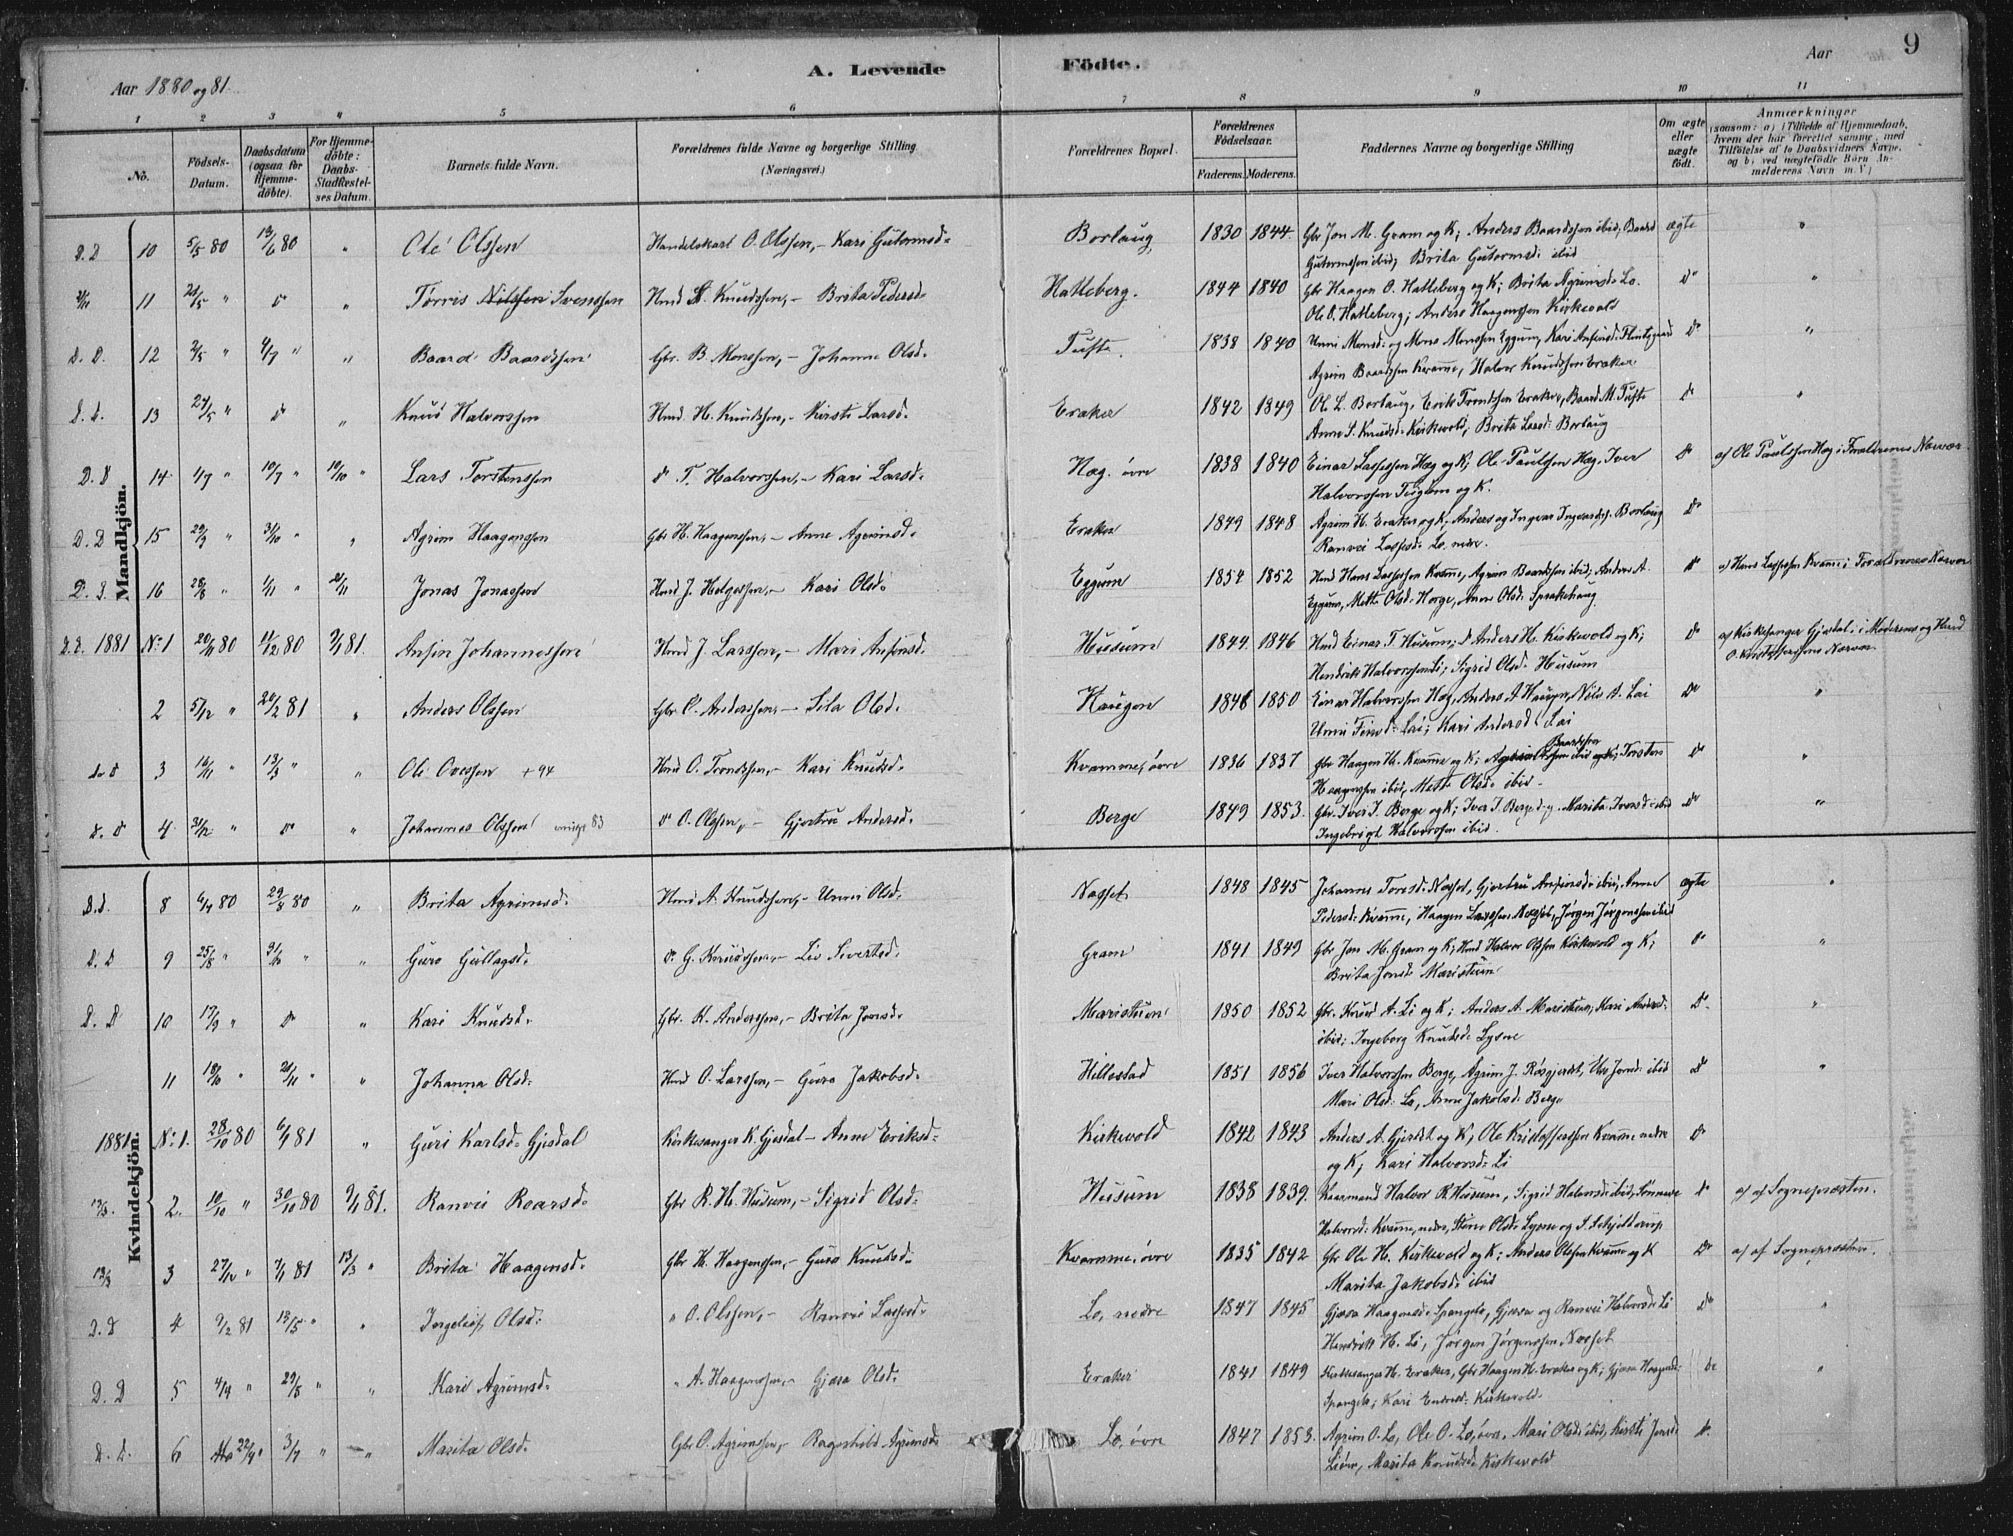 Aar 1880 og 81.
A. Levende Födte.
Aar
9
1 2 3 4 5 6 7 8 9 10 11
No.
Födsels-Datum.
Daabsdatum (ogsaa for Hjemme-döbte).
For Hjemme-döbte: Daabs-Stadfæstel-ses Datum.
Barnets fulde Navn.
Forældrenes fulde Navne og borgerlige Stilling (Næringsvei.)
Forældrenes Bopæl.
Forældrenes Födselsaar.
Faderens. Moderens.
Faddernes Navne og borgerlige Stilling
Om ægte eller uægte födt.
Anmærkninger
(saasom: a) i Tilfælde af Hjemmedaab, hvem der har forrettet samme, med Tilföielse af to Daabsvidners Navne, og b) ved uægtefödte Börn An-melderens Navn m. V.)
Mandkjön.
D. D 10 5/5 80 13/6 80 " Ole Olssen Handelskarl O. Olssen, – Kari Gutormsd. Borlaug 1830 1844. Gbr Jon M. Gram og K; Anders Baardssen ibid, Baard ægte "
Gutormssen ibid; Brita Gutormsd. ibid
11 " d° " Torris Nilssen Svenssen Hmd S. Knudssen, – Brita Pedersd. Hatleberg. 1844 1840 Gbr Haagen O. Hatleberg og K; Brita Agrimsd. Lo. d° "
Ole O. Hatleberg; Anders Haagenssen Kirkevold
D. D. 12 2/5 " 4/7 " " Baard Baardssen Gbr. B. Monssen, – Johanne Olsd. Tufte. 1838 1840 Unni Monsd. og Mons Monssen Eggum, Kari Anfinsd. d° "
Agrim Baardssen Kvamme, Halvor Knudssen Eraker
D. D. 13 24/5 " d° " Knud Halvorssen Hmd H. Knudssen, – Kirsti Larsd. Eraker 1842 1849 Ole L. Borlaug, Erik Trondssen Eraker, Baard M. Tufte d° "
Anne S. Knudsd. Kirkevold; Brita Larsd. Borlaug
D. D 14 4/7 " 10/7 " 10/10 " Lars Torstenssen d° T. Halvorssen, – Kari Larsd. Hæg. övre 1838 1840 Einar Lassessen Hæg og K; Ole Paulssen Hæg, Iver d° a) Ole Paulssen Hæg i Forældrenes Nærvær
Halvorssen og K.
D. D 15 29/9 " 31/10 " " Agrim Haagenssen Gbr H. Haagenssen, – Anne Agrimsd. Eraker 1849 1848 Agrim H. Eraker og K, Anders og Ingvar Borlaug d°
Ranvei Lassesd. Lo, nedre.
16 28/8 " 1/11 " 21/11 Jonas Jonassen Hmd J. Helgessen, – Kari Olsd. Eggum 1854 1852 Hmd Hans Lassessen Kvamme, Agrim Baardssen ibid, Anders A. d° a) Hans Lassessen Kvamme i Forældrenes Nærvær
Eggum, Mette Olsd. Horge, Anne Olsd. Sprakehaug.
1881 No. 1 20/11 80 11/12 80 9/1 81. Anfin Johannessen Hmd J. Larssen, – Mari Anfinsd. Husum 1844. 1846 Hmd Einar T. Husum; d° Anders H. Kirkevold og K; d° a) Kirkesanger Gjesdal i Moderens og Hmd
Hendrik Halvorssen Li; Sigrid Olsd. Husum O. Nærvær.
2 5/12 " 20/2 81 " Anders Olssen Gbr O. Anderssen, – Sila Olsd. Haugen 1846 1850 Einar Halvorssen Hæg, Anders A Haugen, Nils A. Lai d° "
Unni Lai; Kari Andersd. Lai
3 16/11 " 13/3 " " Ole Ovessen + 94 Hmd O. Trondssen, – Kari Knudsd. Kvamme, övre 1836 1837 Gbr Haagen H. Kvamme og K; Baardssen ibid og K; Torsten d° "
Haagenssen ibid, Mette Olsd. ibid.
D. D 4 31/12 " d° " Johannes Olssen 83 d° O. Olssen, – Gjertru Andersd. Berge 1849 1853. Gbr. Iver I. Berge og K; Iver I. Berge d.y. Marita Iversd. ibid d° "
Ingebrigt Halvorssen ibid.
Kvindekjön.
D. D. 8 6/7 80 29/8 80 " Brita Agrimsd. Hmd A. Knudssen, – Unni Olsd. Næsset 1848 1845 Johannes Næsset, Gjertru Anfinsd. ibid, Anne ægte "
Pedersd. Kvamme, Haagen Larssen Næsset, Jørgen Jørgenssen ibid
D. D 9 25/8 " 31/10 " " Guro Gullagsd. d° G. Knudssen, – Liv Sivertsd. Gram 1841 1849 Gbr Jon M. Gram og K; Hmd Halvor Olssen Kirkevold og K; d° "
Brita Jonsd. Maristuen
D. D 10 17/9 " d° " Kari Knudsd. Gbr. K. Anderssen, – Brita Jonsd. Maristuen 1850 1852 Gbr. Knud A. Li og K; Anders A. Maristuen; Kari Andersd. d°. "
ibid; Ingeborg Knudsd. Lysne
11 18/10 " 21/11 " " Johanna Olsd. Hmd O. Larssen, – Guro Jakobsd. Hillestad 1851 1856 Iver Halvorssen Berge, Agrim J. Røsgjerdet, Jonsd. ibid d° "
Mari Olsd. Lo, Anne Jakobsd. Berge
1881. No. 1. 28/10 80 6/1 81 " Guri Karlsd. Gjesdal Kirkesanger K. Gjesdal – Anne Eriksd. Kirkevold 1842 1843 Anders A. Gjerdet og K; Ole Kristofferssen Kvamme nedre d°
og K; Kari Halvorsd. Li
13/3. 2. 10/10 " 30/10 80 9/1 81. Ranvei Roarsd. Gbr R. H. Husum, – Sigrid Olsd. Husum 1838 1839. Halvor R. Husum, Sigrid Halvorsd. ibid, Sønneve d° a) af Sognepræsten.
Halvorsd. Kvamme, nedre, Stine Olsd. Lysne og S. Schjelderup
13/3 3 27/12 " 7/1 81 13/3 " Brita Haagensd. Gbr H. Haagenssen, – Guro Knudsd. Kvamme, övre 1835 1842 Gbr Ole H. Kirkevold og K; Anders Olssen Kvamme og K d° a) af Sognepræsten.
Marita Jakobsd. ibid
D. D 4 9/2 81 13/5 " " Ingeleif Olsd. " O. Olssen, – Ranvei Lassesd. Lo, nedre 1847 1845 Gjøra Haagensd. Spangelo, Gjøra og Ranvei Halvorsd. Li d° "
Hendrik H. Li, Jørgen Jørgenssen Næsset
D. D 5 4/4 29/8 " " Kari Agrimsd. " A. Haagenssen, – Gjøra Olsd. Eraker 1841 1849 Kirkesanger H. Eraker, Gbr Haagen H. Eraker og K; Gjøra Haagensd. d° "
Spangelo; Kari Kirkevold.
D. D. 6 22/4 " 3/7 " " Marita Olsd. Gbr O. Agrimssen, – Ragnhild Agrimsd. Lo, övre 1847 1853. Agrim O. Lo, Ole O. Lo, övre, Mari Olsd. ibid, Kirsti Jonsd. d°.
Marita Knudsd. Kirkevold